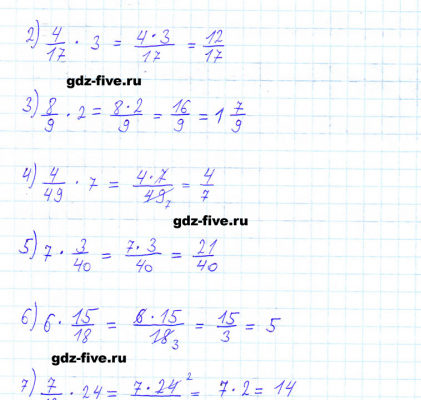 2) 4/17 · 3 = 4·3/17 = 12/17
gdz-five.ru
3) 8/9 · 2 = 8·2/9 = 16/9 = 1 7/9
4) 4/49 · 7 = 4·7/49 7 = 4/7
gdz-five.ru
5) 7 · 3/40 = 7·3/40 = 21/40
6) 6 · 15/18 = 6·15/18 3 = 15/3 = 5
gdz-five.ru
7) 7/ · 24 = 7·24 2 = 7·2 = 14